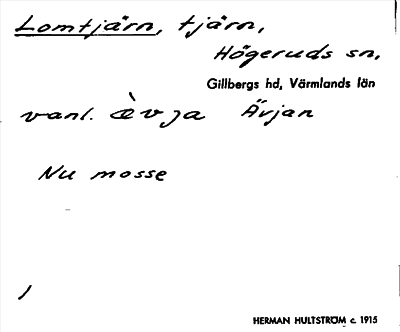 Lomtjärn, tjärn,
Högeruds sn,
Gillbergs hd, Värmlands län
vanl. æ̀vja Ärjan
Nu mosse
/
HERMAN HULTSTRÖM c. 1915